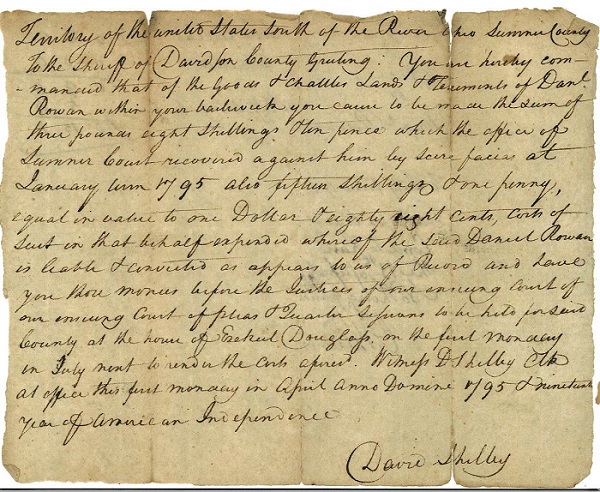 Territory of the united States South of the River Ohio Sumner County
To the Sheriff of Davidson County Greeting: You are hereby com-
-manded that of the Goods & Chattles Lands & Tenements of Danl.
Rowan within your bailiwick you cause to be made the sum of
three pounds eight Shillings & ten pence which the office of
Sumner Court recovered against him by Scire facias at
January term 1795 also fifteen Shillings & one penny,
equal in value to one Dollar & eighty eight Cents, Costs of
Suit in that behalf expended whereof the said Daniel Rowan
is liable & convicted as appears to us of Record and have
you those monies before the Justices of our ensuing Court of
our ensuing Court of pleas & Quarter Sessions to be held for said
County at the house of Ezekiel Douglass, on the first monday
in July next to render the Costs aforesd. Witness D. Shelby Clk
at office this first monday in April Anno Domine 1795 & nineteenth
year of American Independence
David Shelby